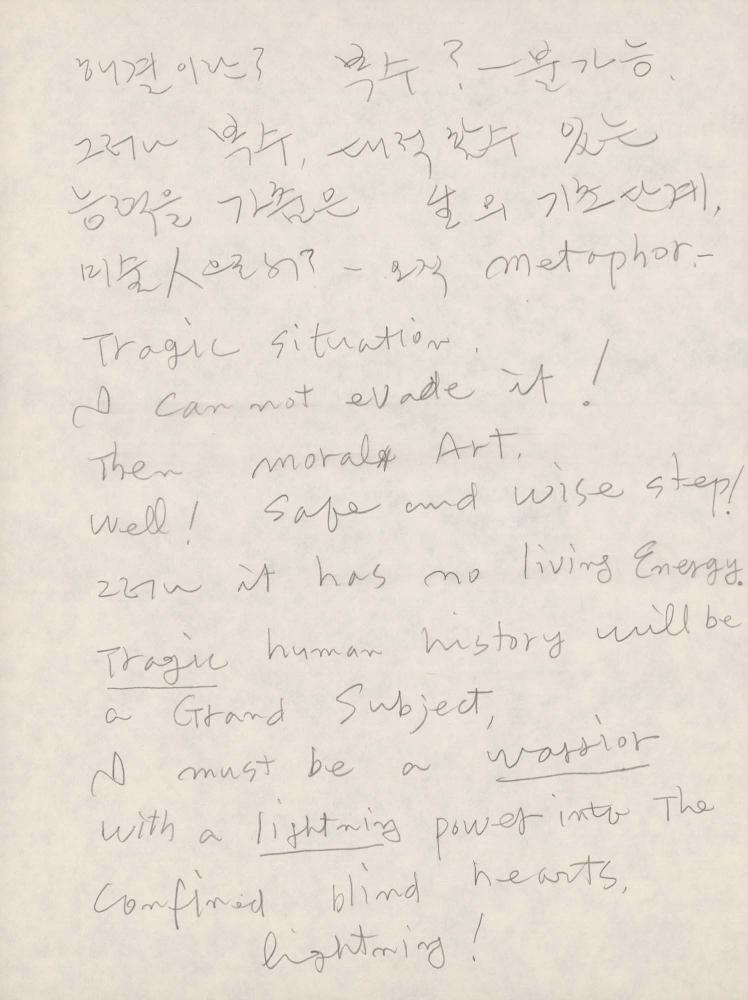 해결이란? 복수? 一 불가능.
그러나 복수, 대적 할수 있는
능력을 가춤은 生의 기초단계,
미술人으로써? - 오직 metaphor.-
Tragic situation.
I can not evade it!
Then moral Art.
Well! Safe and wise step!
그러나 it has no living Energy.
Tragic human history will be
a Grand Subject,
I must be a warrior
with a lightning power into The
confined blind hearts,
lightning!